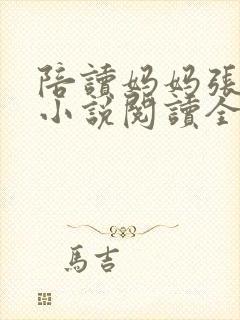 陪讀媽媽張
小說閱讀全
馬吉